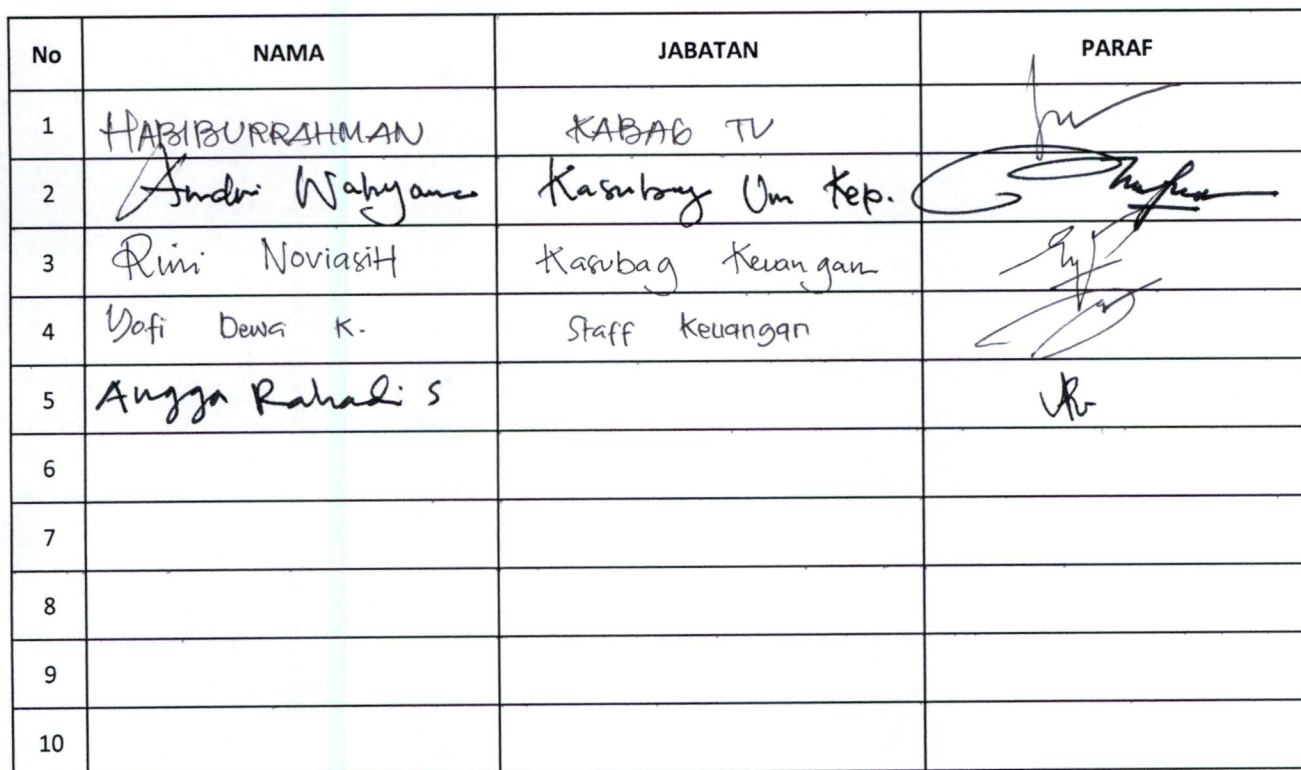 No NAMA JABATAN PARAF
1 HABIBURRAHMAN KABAG TU
2 Andri Wahyono Kasubag Um Kep.
3 Rini NoviasiH Kasubag Keuangan
4 Yofi Dewa K. Staff Keuangan
5 Angga Rahadi S
6
7
8
9
10